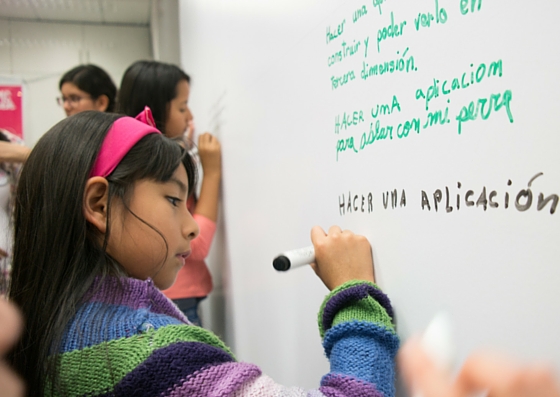 Hacer una
construir y poder verlo en
tercera dimensión.
HACER UNA aplicaciom
para ablar con mi perra
HACER UNA APLICACIÓN